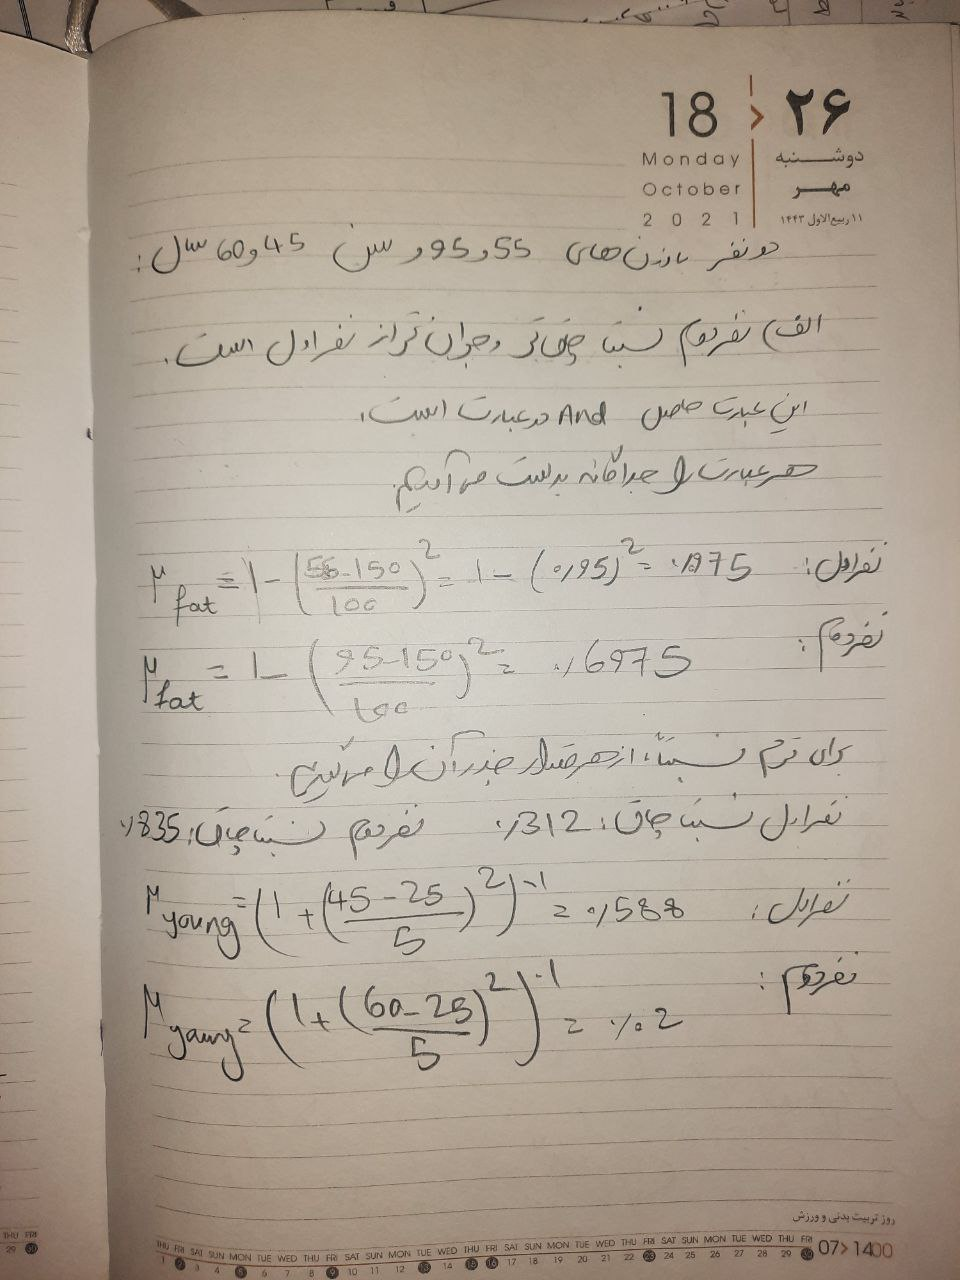 18 > ۲۶
Monday دوشنبه
October مهر
2021 ۱۱ ربیع‌الاول ۱۴۴۳
دو نفر با وزن‌های 55 و 95 و سن 45 و 60 سال:
الف) نفر دوم نسبتا چاق‌تر و جوان‌تر از نفر اول است.
این عبارت حاصل And دو عبارت است.
هر عبارت را جداگانه بدست می‌آوریم.
نفر اول: μfat = 1 - (55-150/100)^2 = 1 - (0/95)^2 = 0/0975
نفر دوم:
μfat = 1 - (95-150/100)^2 = 0/6975
برای ترم نسبتاً، از هر مقدار جذر آن را می‌گیریم.
نفر اول نسبتا چاق: 0/312 نفر دوم نسبتا چاق: 0/835
نفر اول: μyoung = (1 + (45-25/5)^2)^-1 = 0/588
نفر دوم:
μyoung = (1 + (60-25/5)^2)^-1 = 0/02
روز تربیت بدنی و ورزش
THU FRI SAT SUN MON TUE WED THU FRI SAT SUN MON TUE WED THU FRI SAT SUN MON TUE WED THU FRI SAT SUN MON TUE WED THU FRI 07>1400
1 2 3 4 5 6 7 8 9 10 11 12 13 14 15 16 17 18 19 20 21 22 23 24 25 26 27 28 29 30
THU FRI
29 30